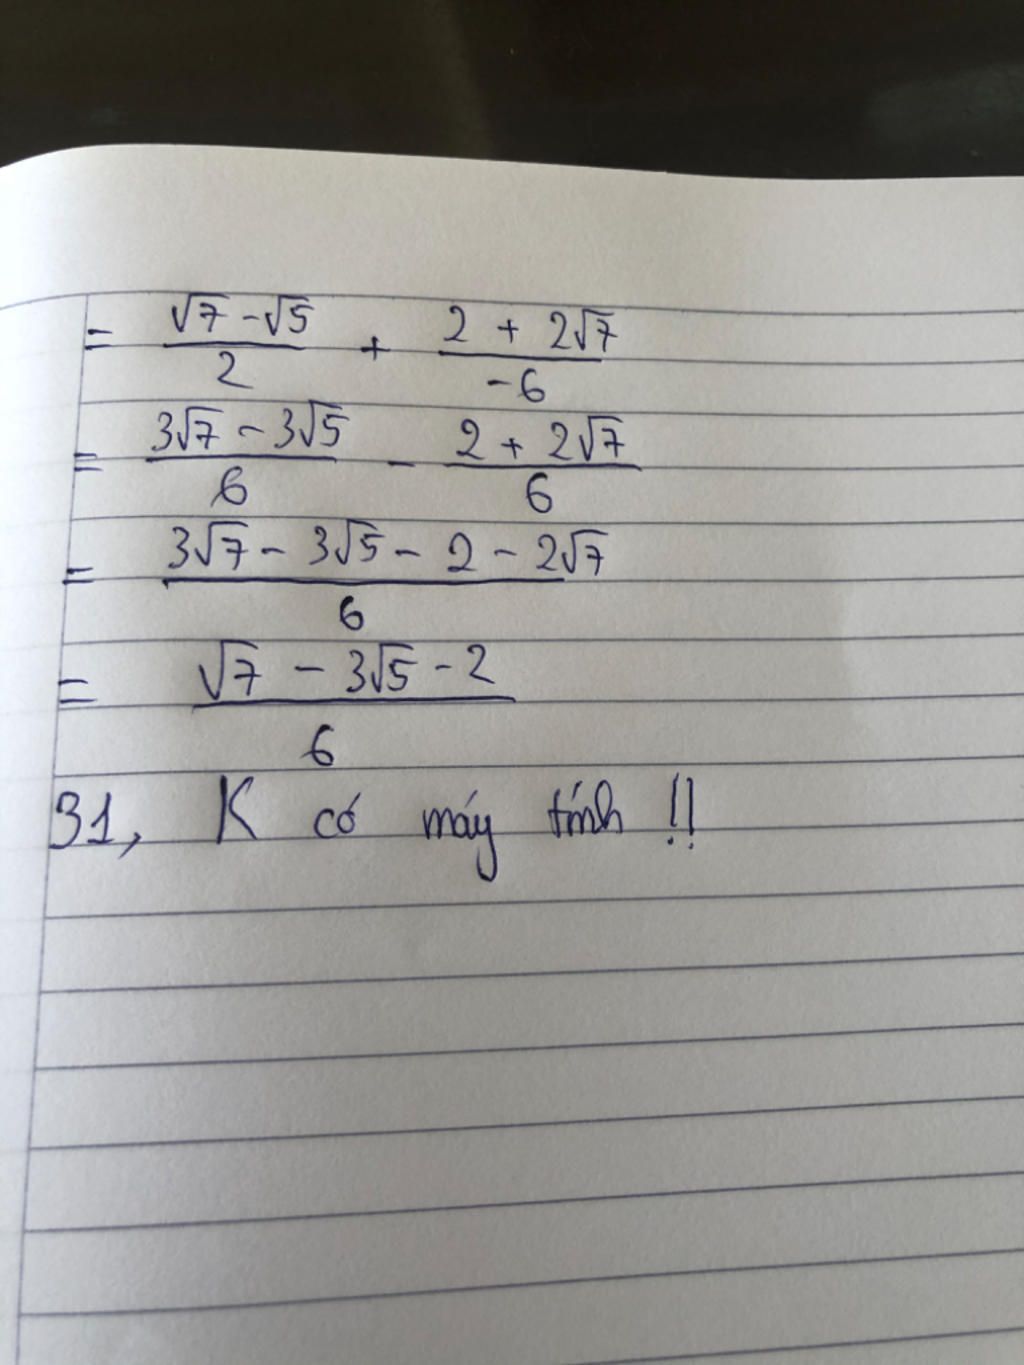 = (√7 - √5)/2 + (2 + 2√7)/-6
= (3√7 - 3√5)/6 - (2 + 2√7)/6
= (3√7 - 3√5 - 2 - 2√7)/6
= (√7 - 3√5 - 2)/6
31, K có máy tính !!